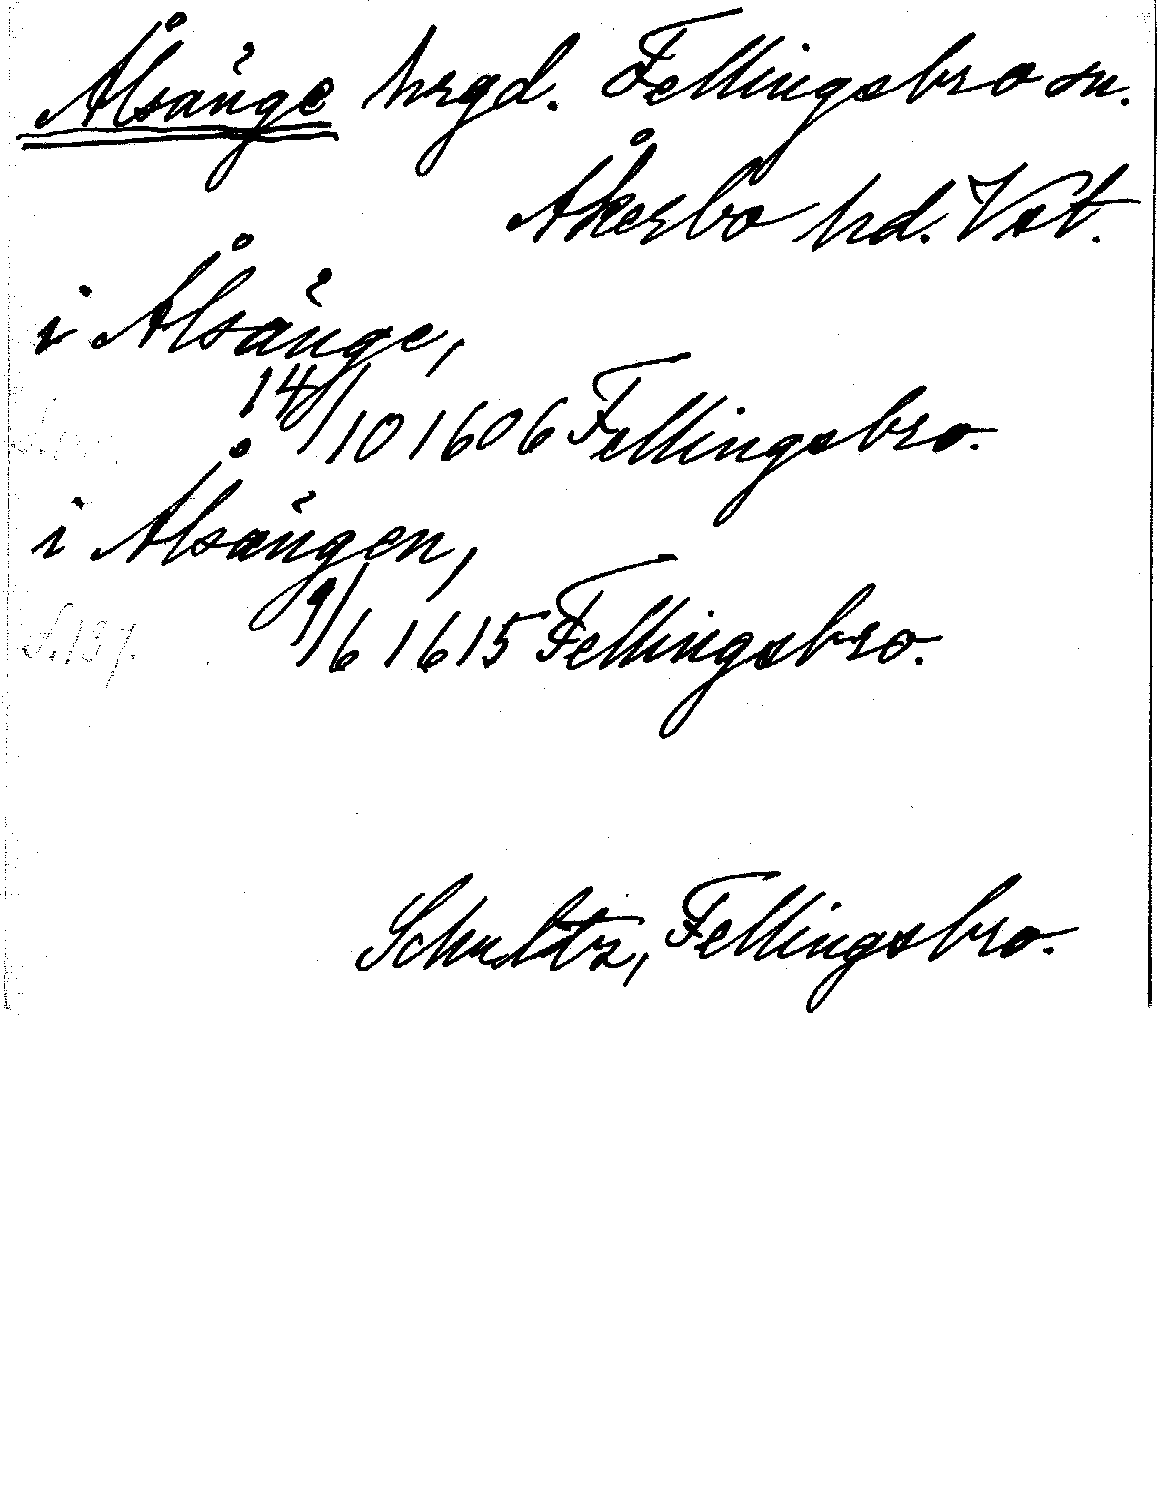 Ålsänge hrgd. Fellingsbro sn.
Åkerbo hd. Vstm.
i Ålsänge,
14/10 1606 Fellingsbro.
i Ålsängen,
9/6 1615 Fellingsbro.
S. 137.
Schultz, Fellingsbro.